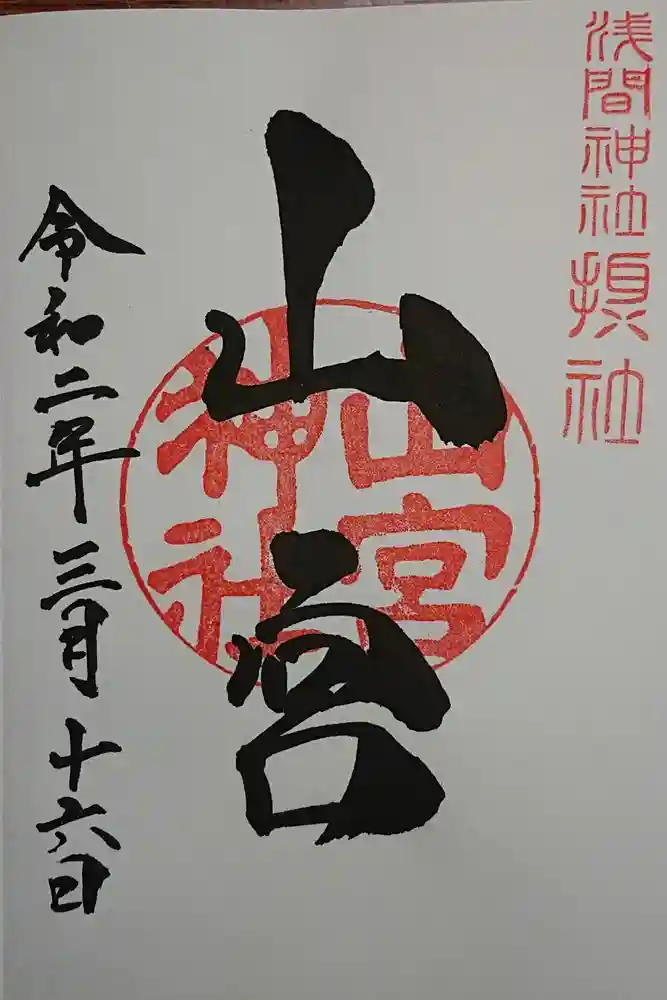 浅間神社摂社
山宮
山宮
神社
令和二年三月十六日